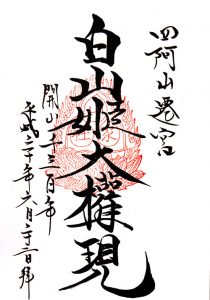 四阿山遷宮
白山大權現
開山一千三百年
平成三十年六月日拝